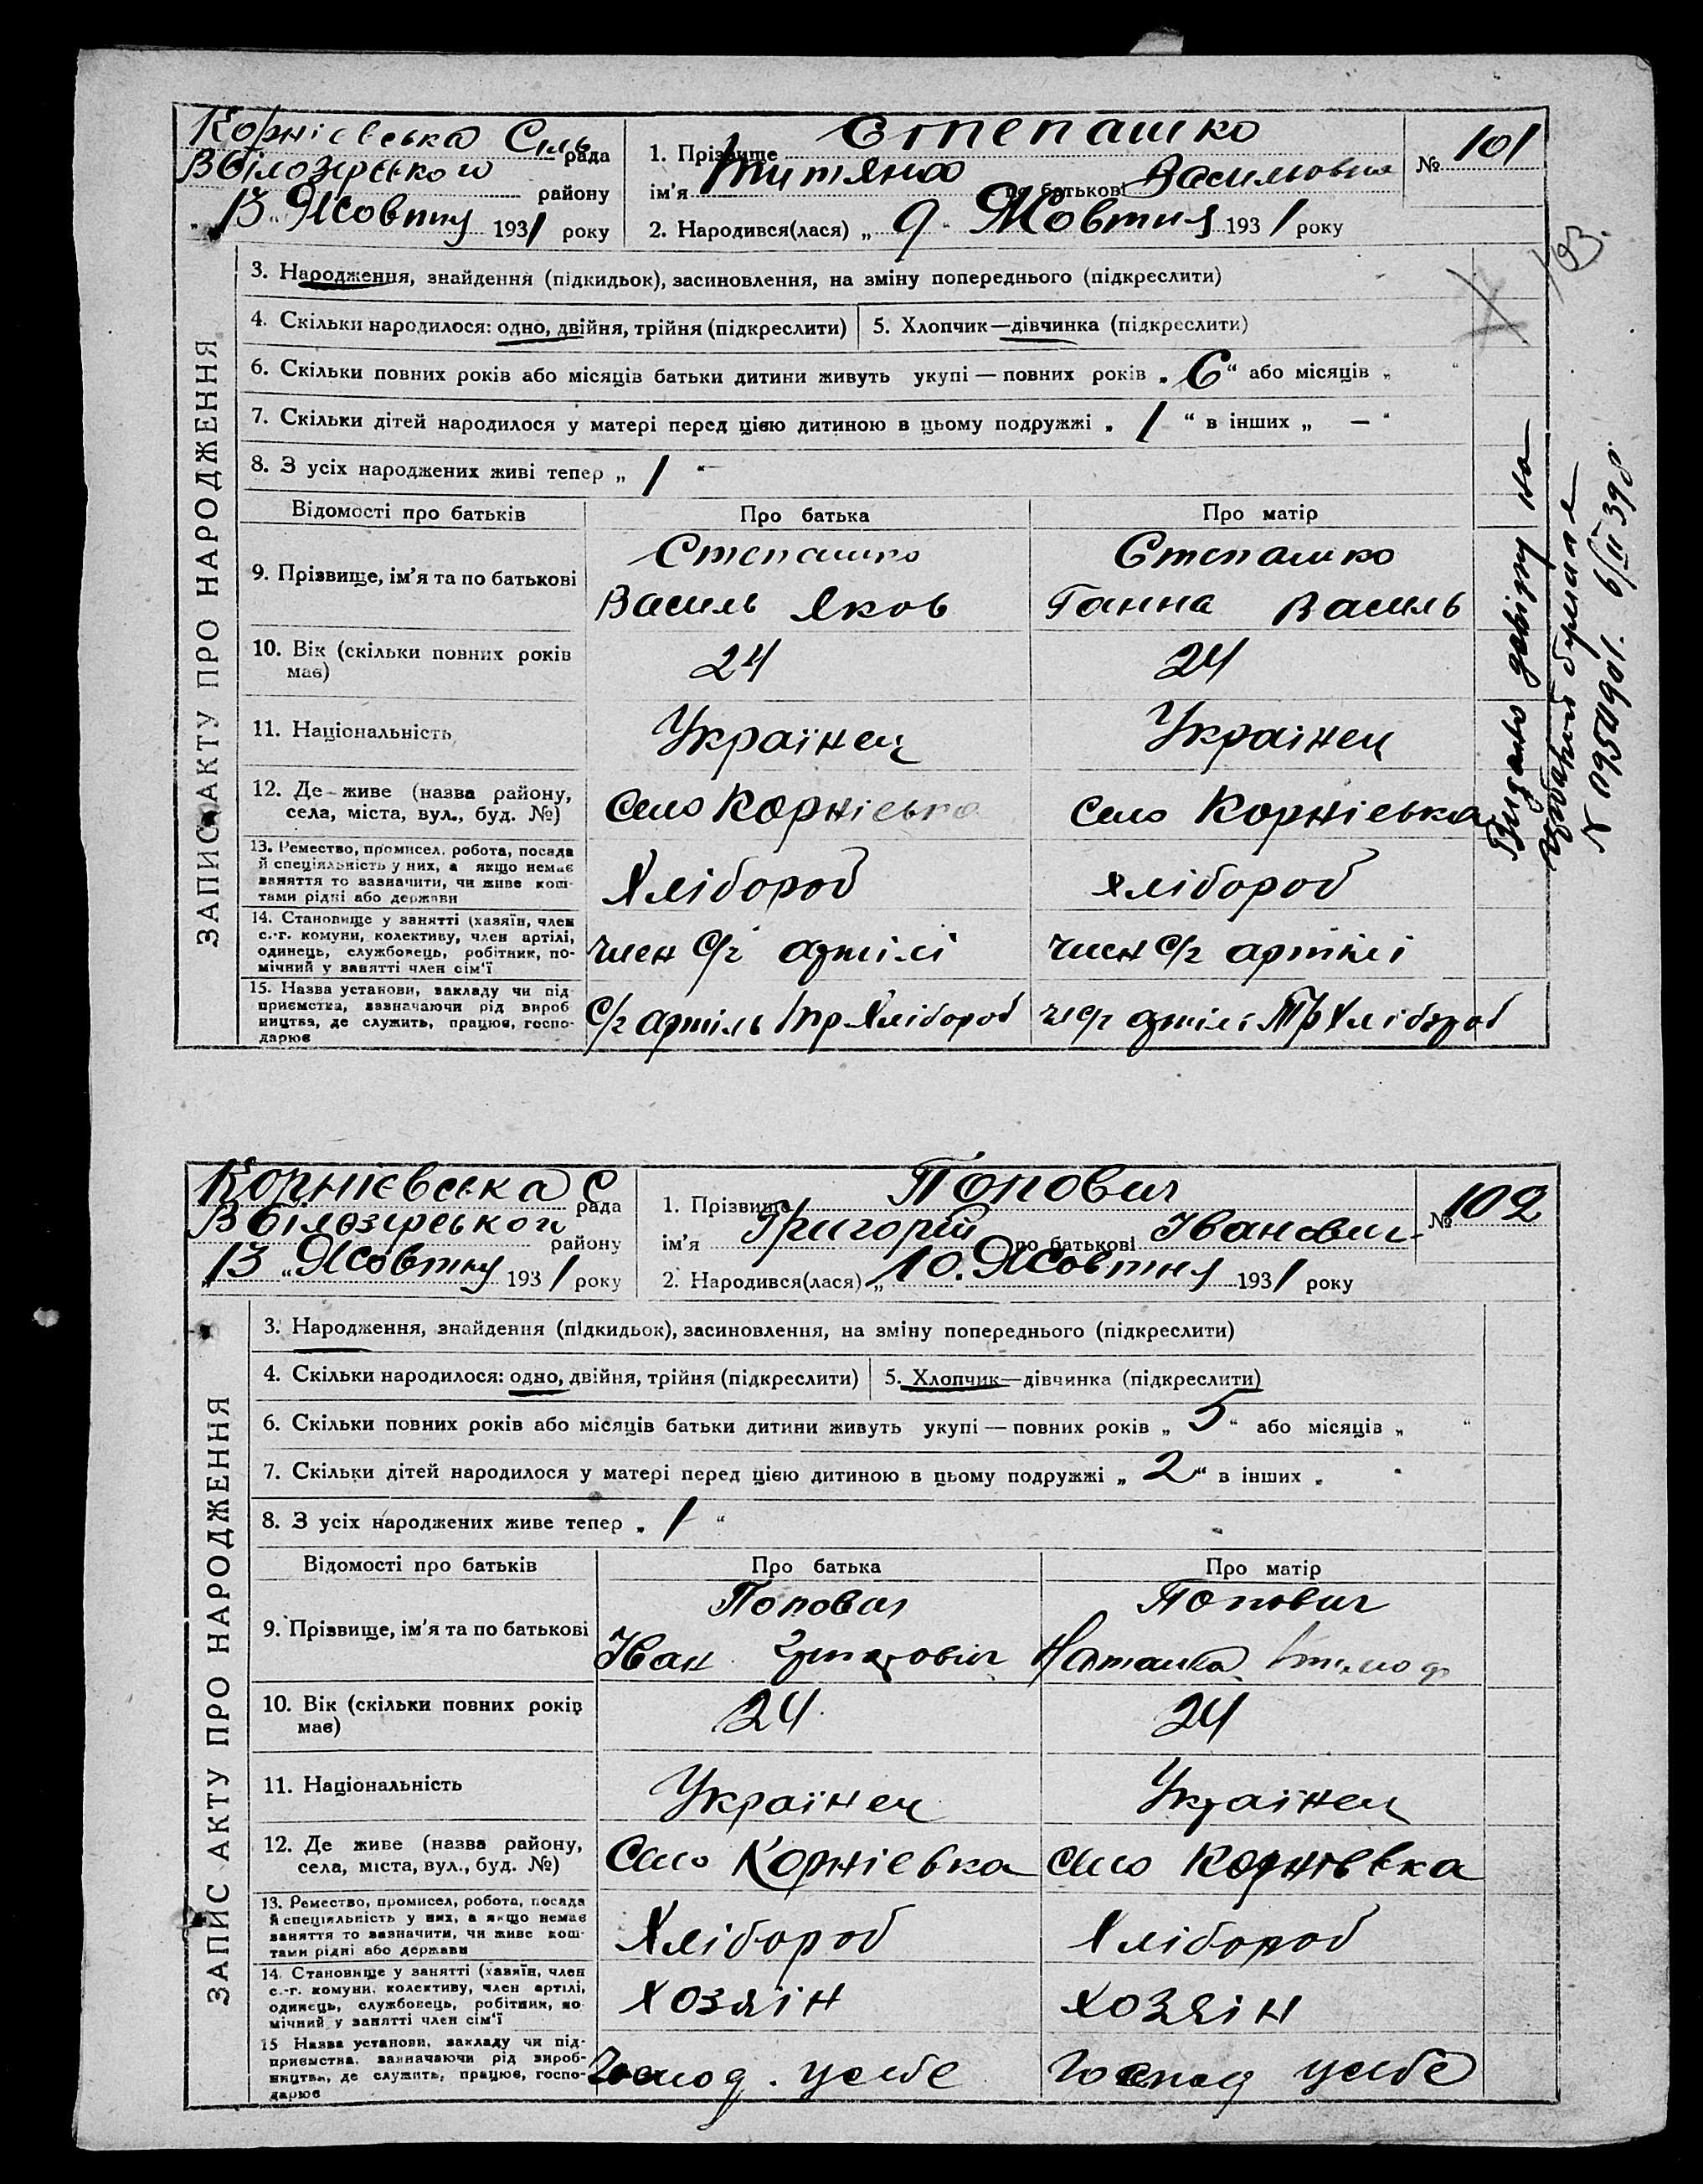 Корнієвська Сіль рада
Вбілозірського району
„13„ Жовтня 1931 року
1. Прізвище Степашко
ім'я Титяна по батькові Василювна
2. Народився(лася) „9" Жовтня 1931 року
№ 101
ЗАПИС АКТУ ПРО НАРОДЖЕННЯ
3. Народження, знайдення (підкидьок), засиновлення, на зміну попереднього (підкреслити)
4. Скільки народилося: одно, двійня, трійня (підкреслити)
5. Хлопчик—дівчинка (підкреслити)
6. Скільки повних років або місяців батьки дитини живуть укупі — повних років „ 6 “ або місяців „ “
7. Скільки дітей народилося у матері перед цією дитиною в цьому подружжі „ 1 “ в інших „ — “
8. З усіх народжених живі тепер „ 1 “
Відомості про батьків Про батька Про матір
9. Прізвище, ім'я та по батькові
Степашко
Василь Яков
Степашко
Ганна Василь
10. Вік (скільки повних років
має)
24
24
11. Національність
Українец
Українец
12. Де живе (назва району,
села, міста, вул., буд. №)
Село Корніевка
село Корніевка
13. Ремество, промисел, робота, посада
й спеціяльність у них, а якщо немає
заняття то зазначити, чи живе кош-
тами рідні або держави
Хлібороб
хлібороб
14. Становище у занятті (хазяїн, член
с.-г. комуни, колективу, член артілі,
одинець, службовець, робітник, по-
мічний у занятті член сім'ї
член С/г артілі
член С/г артілі
15. Назва установи, закладу чи під-
приємства, зазначаючи рід вироб-
ництва, де служить, працює, госпо-
дарює
С/г артіль Хлібороб
Хлібороб
довідку на
Корнієвська С рада
Вбілозірського району
„13„ Жовтня 1931 року
1. Прізвище Попович
ім'я Григорій по батькові Іванович
2. Народився(лася) „10. Жовтня 1931 року
№ 102
ЗАПИС АКТУ ПРО НАРОДЖЕННЯ
3. Народження, знайдення (підкидьок), засиновлення, на зміну попереднього (підкреслити)
4. Скільки народилося: одно, двійня, трійня (підкреслити)
5. Хлопчик—дівчинка (підкреслити)
6. Скільки повних років або місяців батьки дитини живуть укупі — повних років „ 5 “ або місяців „ “
7. Скільки дітей народилося у матері перед цією дитиною в цьому подружжі „ 2 “ в інших „ “
8. З усіх народжених живе тепер „ 1 “
Відомості про батьків Про батька Про матір
9. Прізвище, ім'я та по батькові
Попович
Іван
Попович
Наталка
10. Вік (скільки повних років
має)
24
24
11. Національність
Українец
Українец
12. Де живе (назва району,
села, міста, вул., буд. №)
Село Корніевка
село Корнівека
13. Ремество, промисел, робота, посада
й спеціяльність у них, а якщо немає
заняття то зазначити, чи живе кош-
тами рідні або держави
Хлібороб
Хлібороб
14. Становище у занятті (хазяїн, член
с.-г. комуни, колективу, член артілі,
одинець, службовець, робітник, по-
мічний у занятті член сім'ї
хозяін
хозяін
15 Назва установи, закладу чи під-
приємства, зазначаючи рід вироб-
ництва, де служить, працює, госпо-
дарює
Господ. усебе
Господ усебе